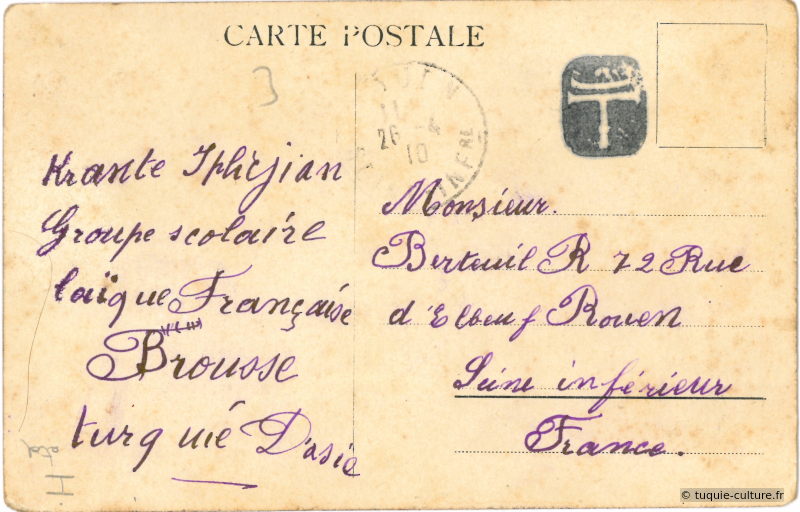 CARTE POSTALE
3
11
26 - 4
10
INFRE
T
Krante Iphéjian
Groupe scolaire
laïque Française
Brousse
turquié D'asie
Monsieur.
Berteuil R 72 Rue
d'Elbeuf Rouen
Seine inférieur
France.
© tuquie-culture.fr